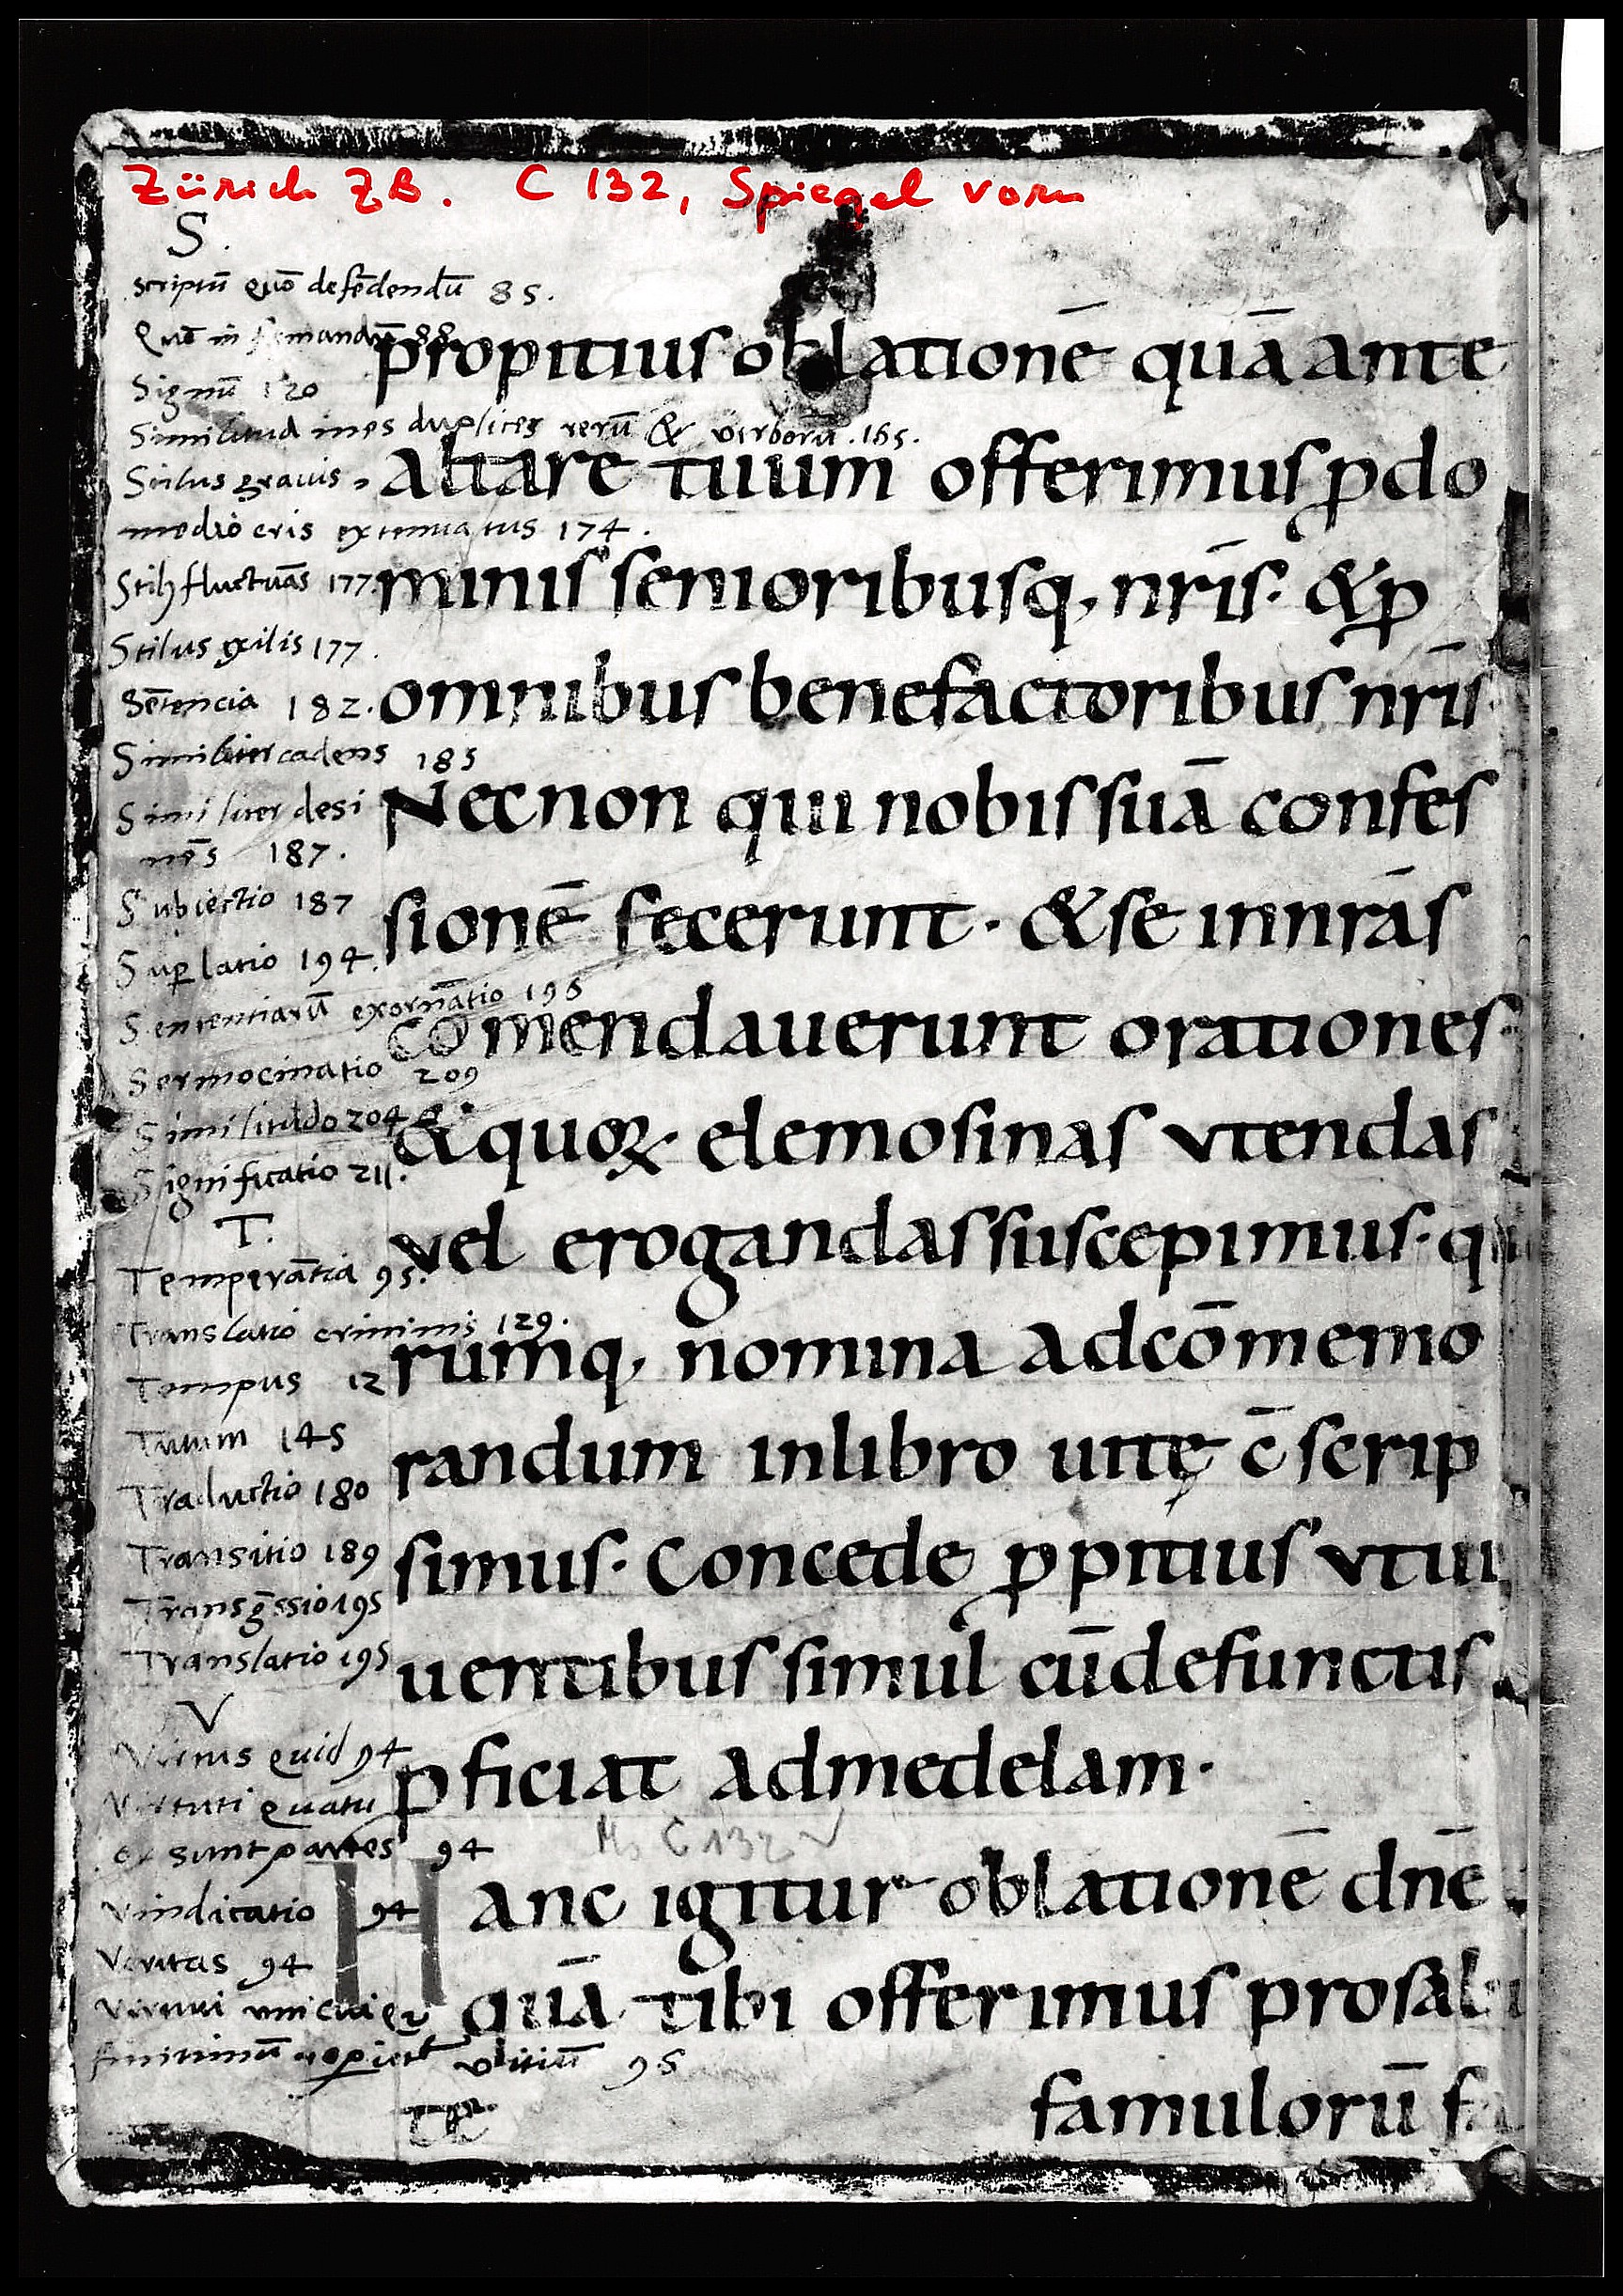 Zürich ZB. C 132, Spiegel vorn
S.
scriptū quō defēdendū 85.
Quō in 88
Signū 120
Similitudines duplices rerū & verborū. 165.
Stilus grauis,
mediocris extenuatus 174.
Stilꝫ fluctuās 177.
Stilus exilis 177.
Sētencia 182.
Similiter cadens 185
Similiter desi
nēs 187.
Subiectio 187
Suꝑlatio 194.
Sententiarū exornātio 196
Sermocinatio 209
Similitudo 204
Significatio 211.
T.
Temperātia 95.
Translatio criminis 129.
Tempus 12
Tutum 145
Traductio 180
Transitio 189
Transg̅ssio 195
Translatio 195
V
Virtus quid 94
Virtuti quatu
or sunt partes 94
Vindicatio 94
Veritas 94
Virtuti unicuiqꝫ
finitimū vitiū 95
propitius oblationē quā ante
altare tuum offerimus ꝓ do
minis senioribusq, nr̄is· & ꝓ
omnibus benefactoribus nr̄is·
Necnon qui nobis suā confes
sionē fecerunt· & se in nr̄ās
cōmendauerunt orationes·
& quoꝝ· elemosinas vtendas
vel erogandas suscepimus· quo
rumq, nomina ad cōmemo
randum in libro uitę c̄scrip
simus· Concede ꝓpitius vt ui
uentibus simul cū defunctis
ꝓficiat ad medelam·
Ms C 132
Hanc igitur oblationē dnē
quā tibi offerimus pro salu
te famulorū fa